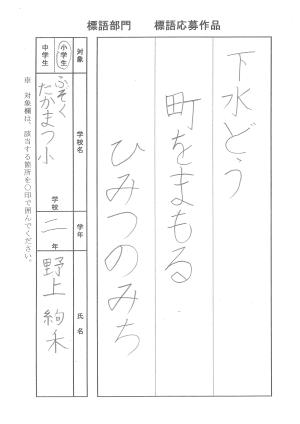 標語部門　標語応募作品
下水どう
町をまもる
ひみつのみち
対象
小学生
中学生
学校名
ふぞく
たかまつ小
学校
学年
二年
氏名
野上 絢禾
※ 対象欄は、該当する箇所を〇印で囲んでください。